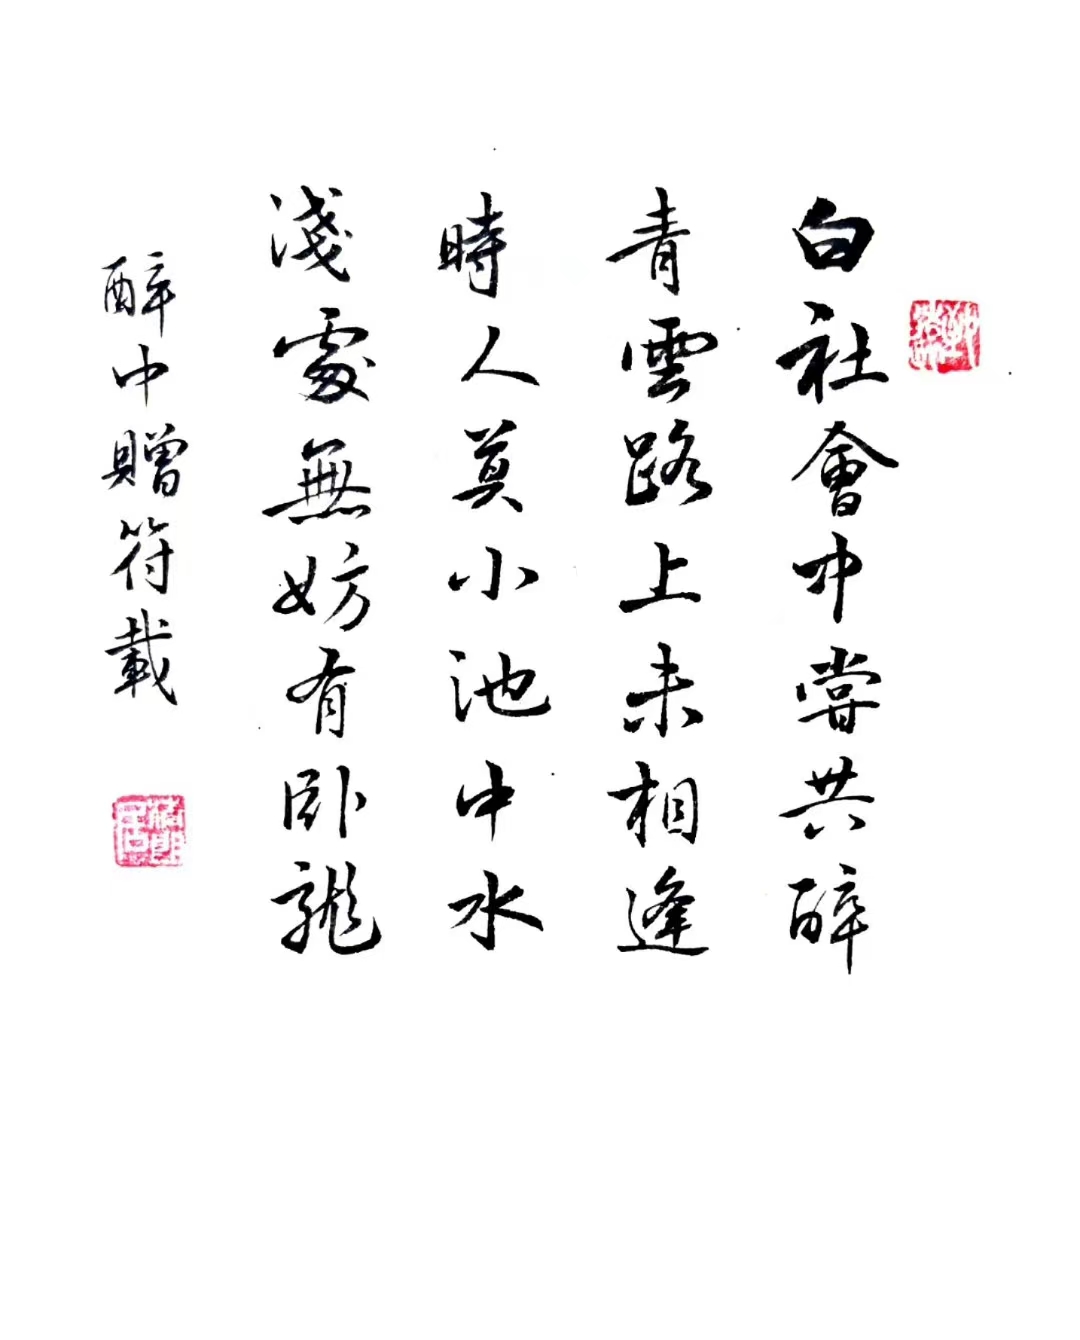 白社會中嘗共醉
青雲路上未相逢
時人莫小池中水
淺處無妨有臥龍
醉中贈符載